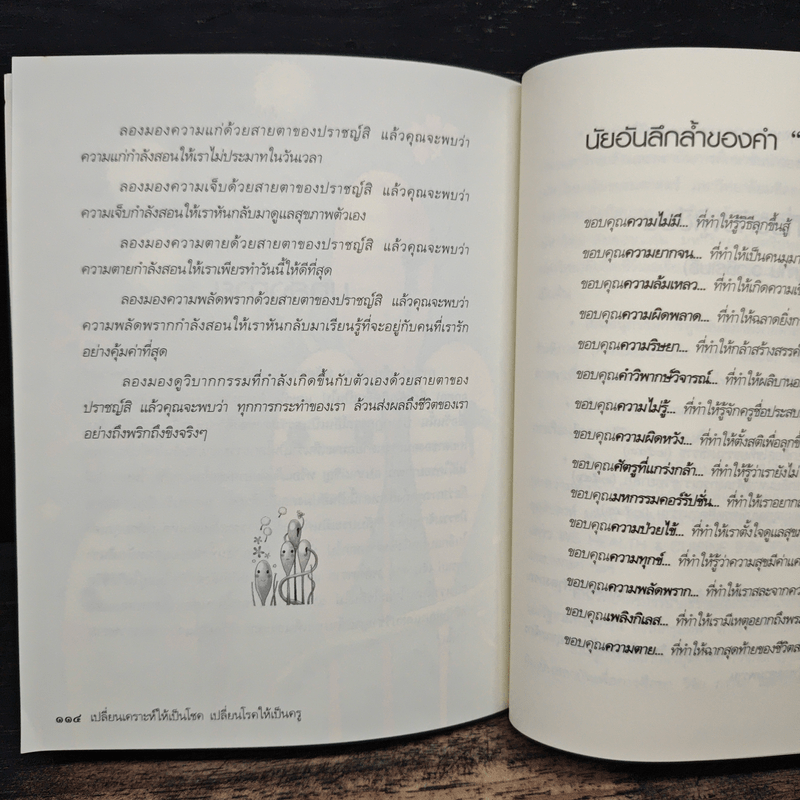 ลองมองความแก่ด้วยสายตาของปราชญ์สิ แล้วคุณจะพบว่า
ความแก่กำลังสอนให้เราไม่ประมาทในวันเวลา
ลองมองความเจ็บด้วยสายตาของปราชญ์สิ แล้วคุณจะพบว่า
ความเจ็บกำลังสอนให้เราหันกลับมาดูแลสุขภาพตัวเอง
ลองมองความตายด้วยสายตาของปราชญ์สิ แล้วคุณจะพบว่า
ความตายกำลังสอนให้เราเพียรทำวันนี้ให้ดีที่สุด
ลองมองความพลัดพรากด้วยสายตาของปราชญ์สิ แล้วคุณจะพบว่า
ความพลัดพรากกำลังสอนให้เราหันกลับมาเรียนรู้ที่จะอยู่กับคนที่เรารัก
อย่างคุ้มค่าที่สุด
ลองมองดูวิบากกรรมที่กำลังเกิดขึ้นกับตัวเองด้วยสายตาของ
ปราชญ์สิ แล้วคุณจะพบว่า ทุกการกระทำของเรา ล้วนส่งผลถึงชีวิตของเรา
อย่างถึงพริกถึงขิงจริงๆ
๑๑๔ เปลี่ยนเคราะห์ให้เป็นโชค เปลี่ยนโรคให้เป็นครู
นัยอันลึกล้ำของคำ “
ขอบคุณความไม่มี... ที่ทำให้รู้วิธีลุกขึ้นสู้
ขอบคุณความยากจน... ที่ทำให้เป็นคนมุมา
ขอบคุณความล้มเหลว... ที่ทำให้เกิดความเ
ขอบคุณความผิดพลาด... ที่ทำให้ฉลาดยิ่งก
ขอบคุณความริษยา... ที่ทำให้กล้าสร้างสรรค์
ขอบคุณคำวิพากษ์วิจารณ์... ที่ทำให้ผลิบานอ
ขอบคุณความไม่รู้... ที่ทำให้รู้จักครูชื่อประสบ
ขอบคุณความผิดหวัง... ที่ทำให้ตั้งสติเพื่อลุกขึ้
ขอบคุณศัตรูที่แกร่งกล้า... ที่ทำให้รู้ว่าเรายังไม่
ขอบคุณมหกรรมคอร์รัปชั่น... ที่ทำให้เราอยาก
ขอบคุณความป่วยไข้... ที่ทำให้เราตั้งใจดูแลสุข
ขอบคุณความทุกข์... ที่ทำให้รู้ว่าความสุขมีค่าแค่
ขอบคุณความพลัดพราก... ที่ทำให้เราสละจากคว
ขอบคุณเพลิงกิเลส... ที่ทำให้เรามีเหตุอยากถึงพร
ขอบคุณความตาย... ที่ทำให้ฉากสุดท้ายของชีวิตส